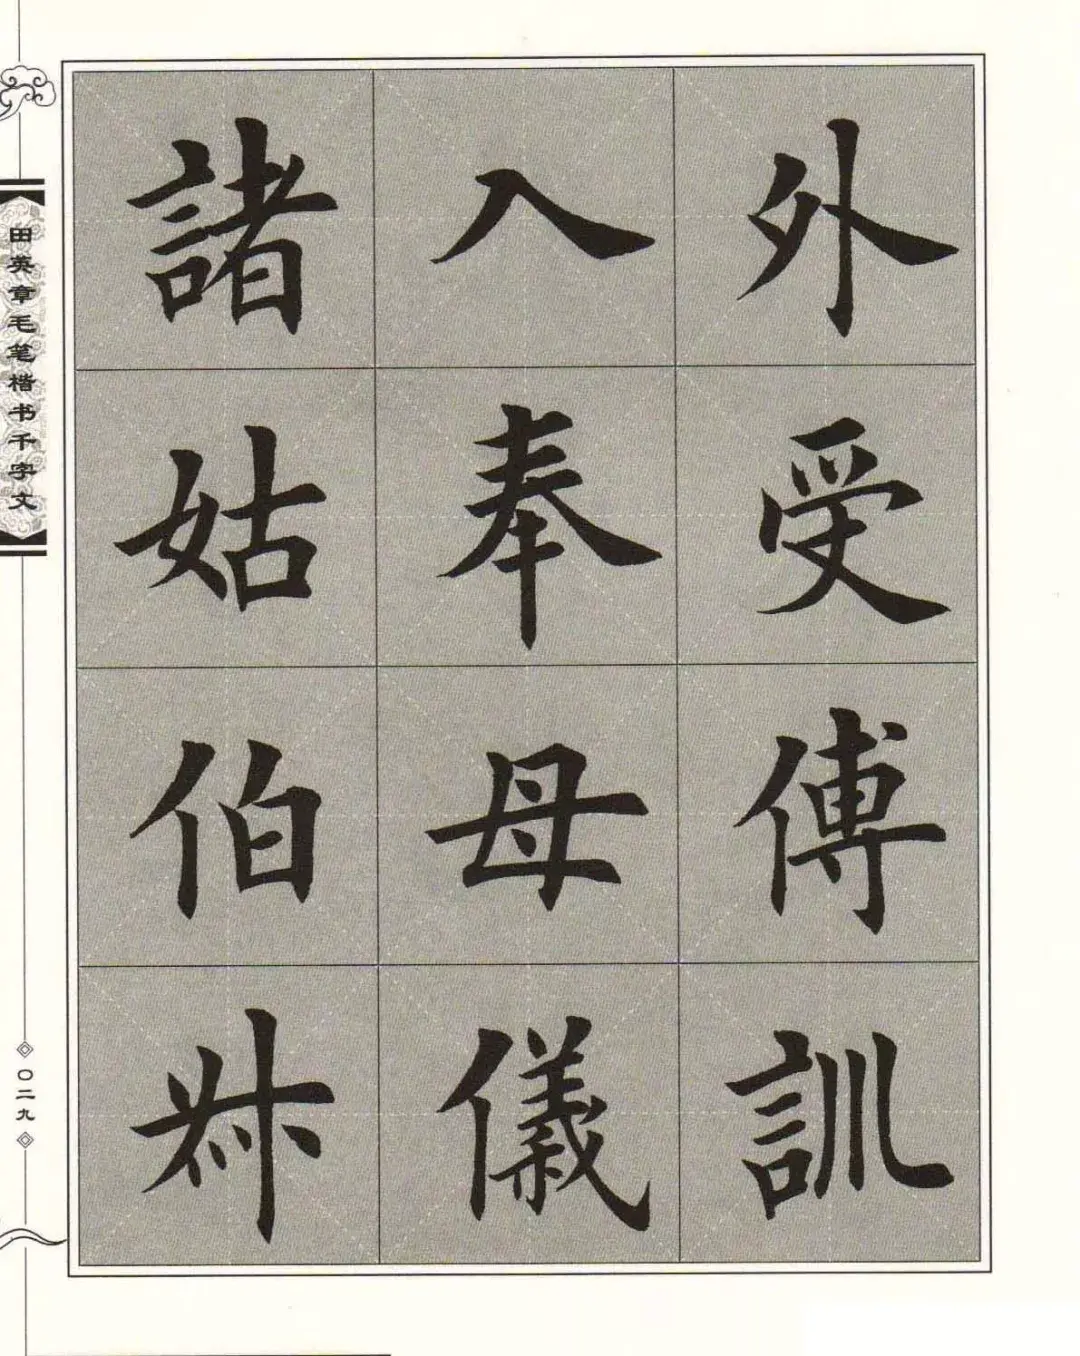 外受傅訓
入奉母儀
諸姑伯叔
田英章毛笔楷书千字文
〇二九